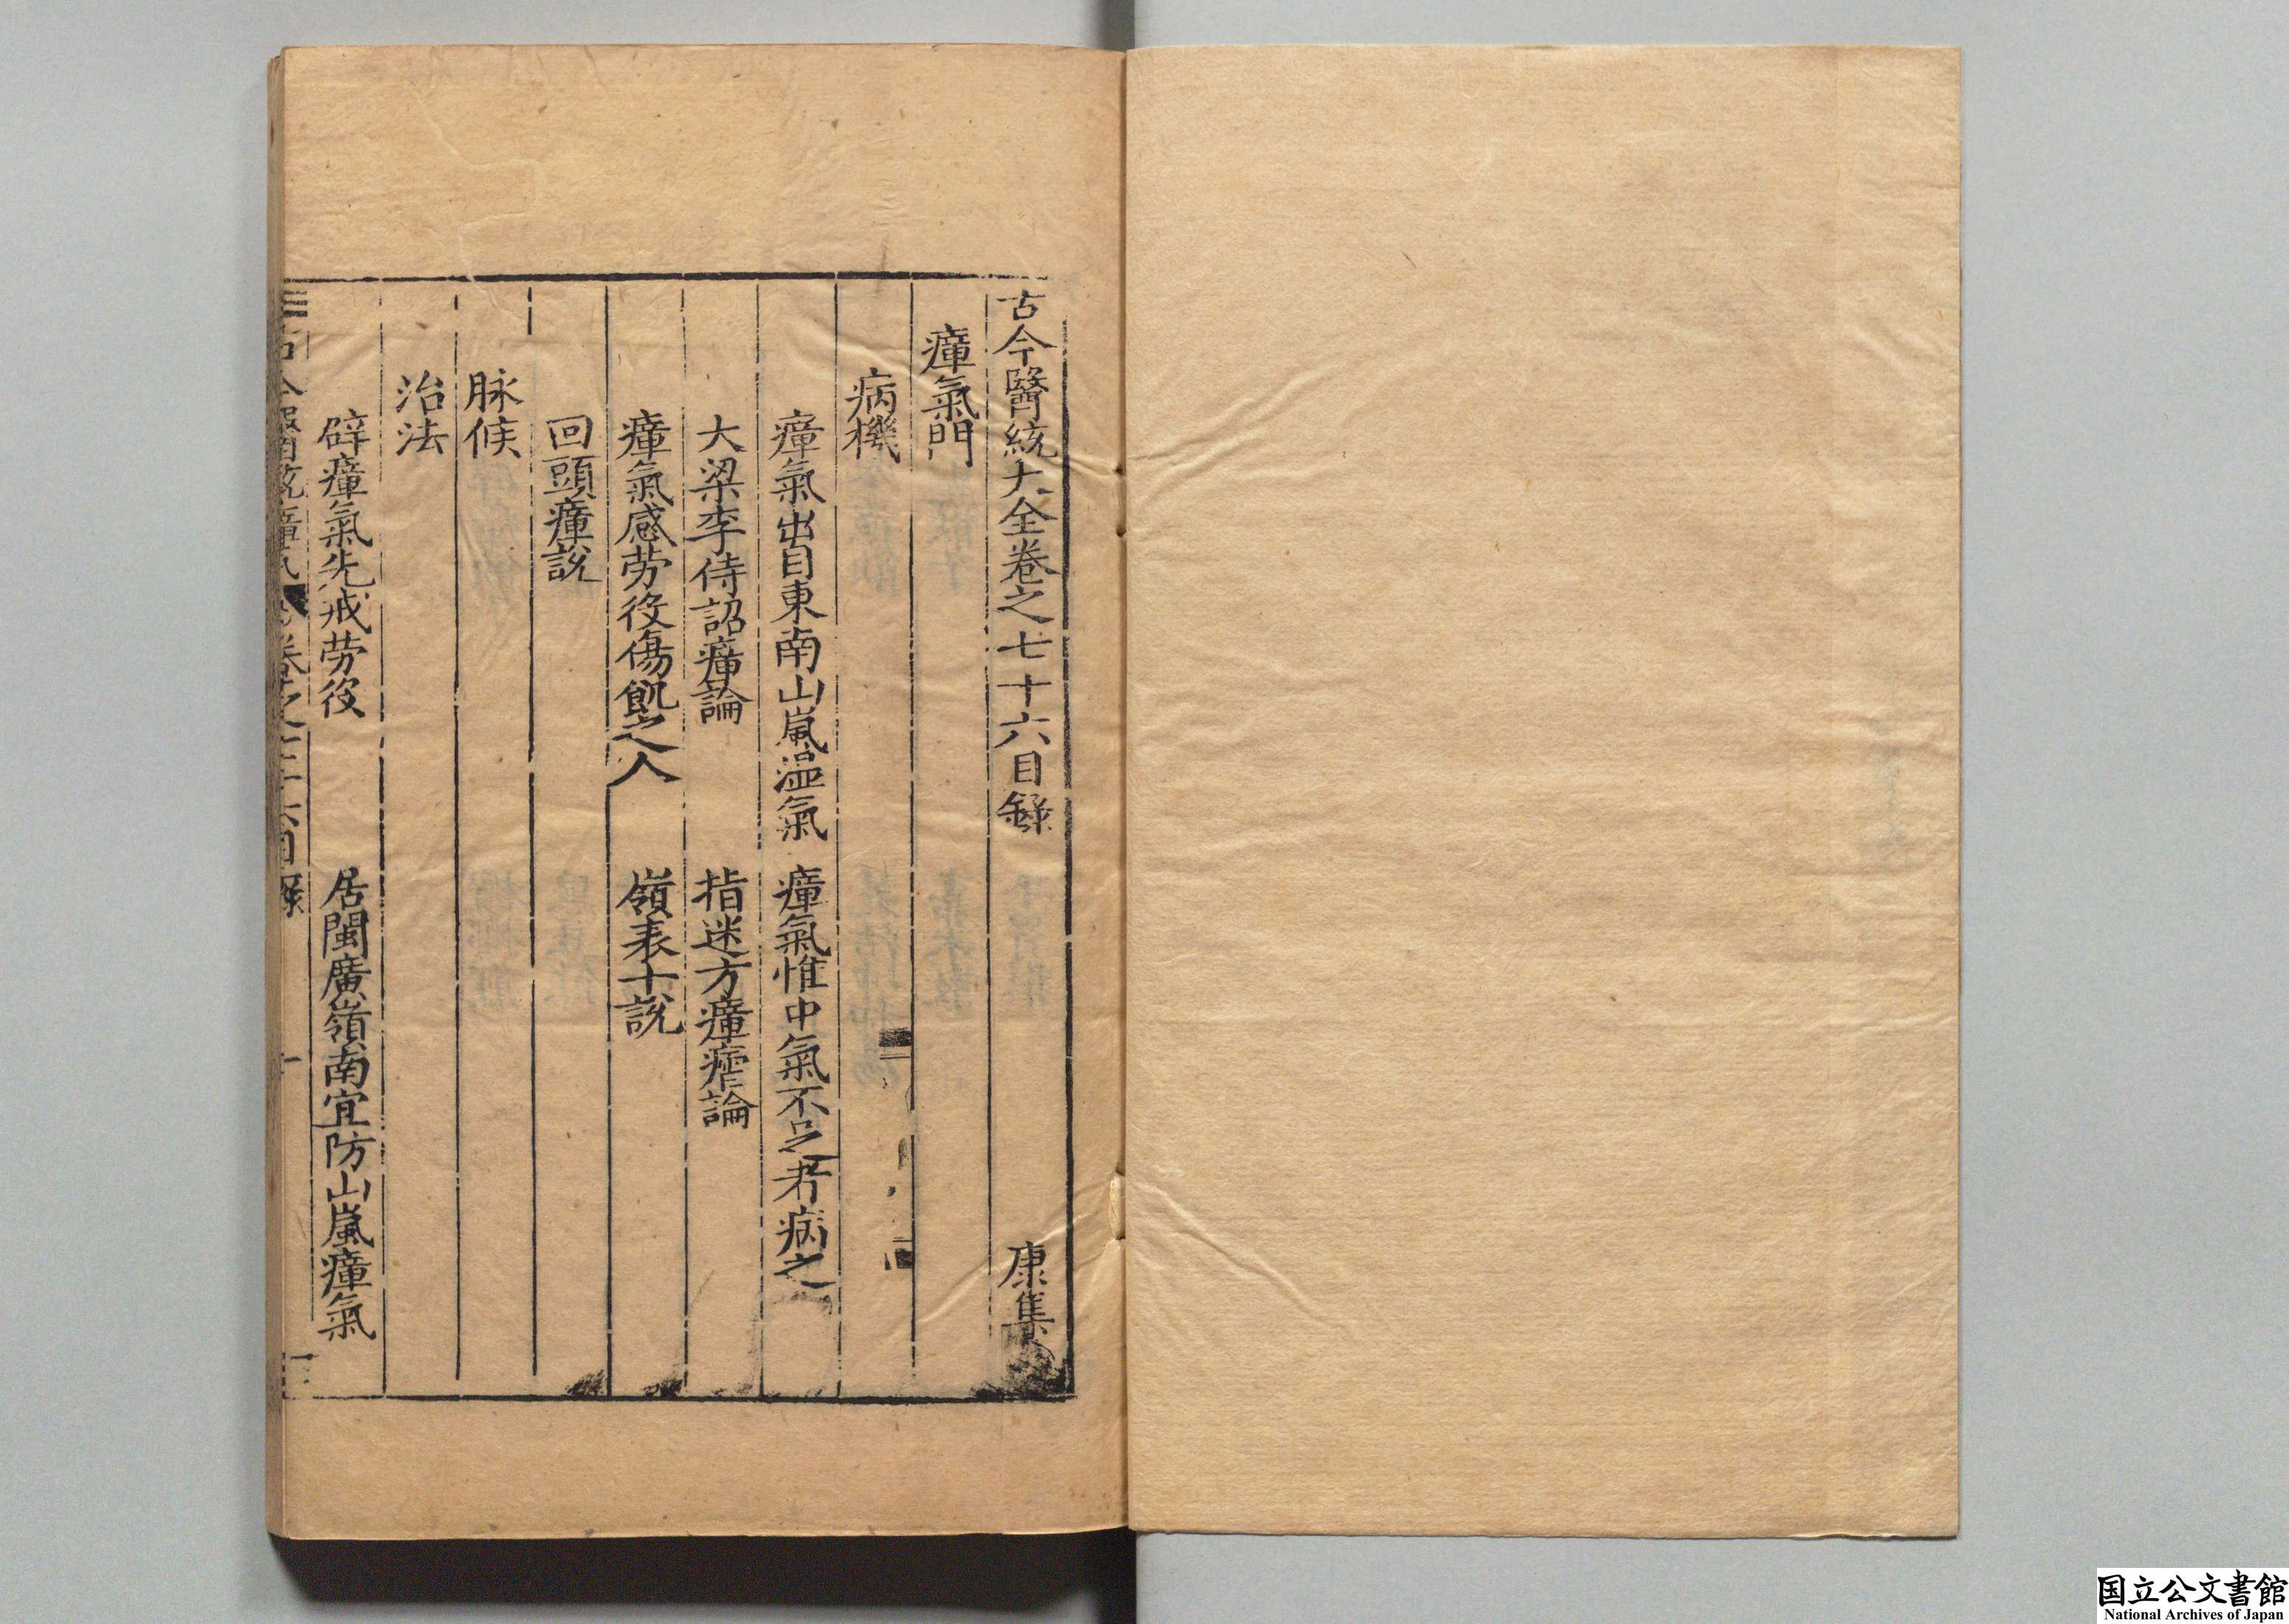 古今醫統大全卷之七十六目錄　康集
瘴氣門
病機
瘴氣出自東南山嵐溫氣　瘴氣惟中氣不足者病之
大梁李待詔瘴論　指迷方瘴瘧論
瘴氣感劳役傷飢之人　嶺表十說
回頭瘴說
脉候
治法
辟瘴氣先戒劳役　居閩廣嶺南宜防山嵐瘴氣
国立公文書館
National Archives of Japan